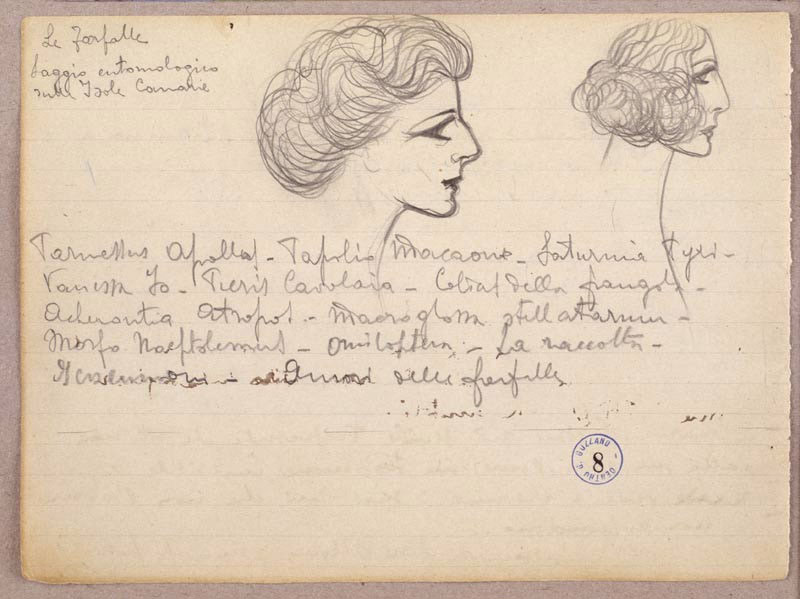 Le Farfalle
Saggio entomologico
sulle Isole Canarie
Parnessus Apollas - Papolio Macaone - Saturnia Pyri -
Vanessa Jo - Pieris Cavolaia - Colias della frangola -
Acherontia Atropos - Macroglossa stellatarum -
Morfo Naeptolemus - Ornitoptera - La raccolta -
Amori delle farfalle
CENTRO G. GOZZANO
8